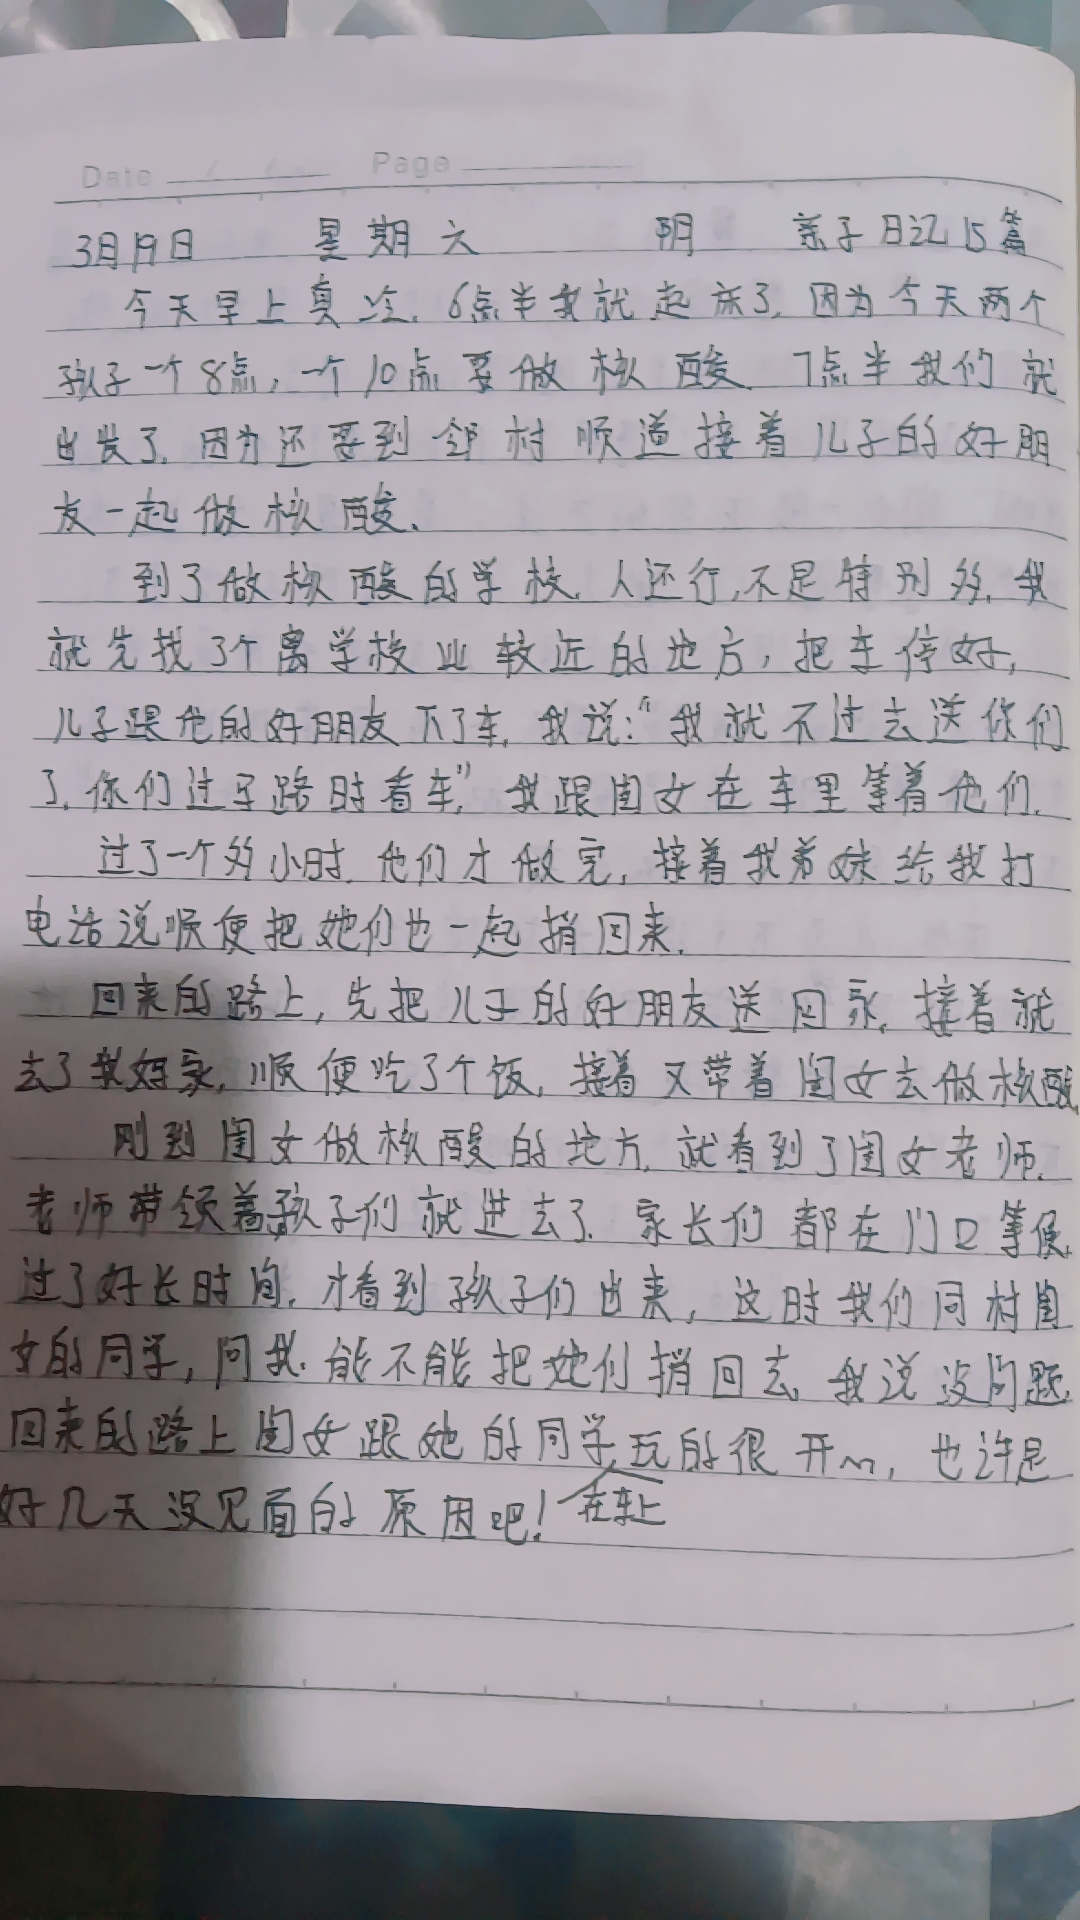 Date Page
3月19日 星期六 阴 亲子日记15篇
今天早上真冷.6点半我就起床了.因为今天两个
孩子一个8点,一个10点要做核酸.7点半我们就
出发了.因为还要到邻村顺道接着儿子的好朋
友一起做核酸.
到了做核酸的学校.人还行,不是特别多.我
就先找了个离学校比较近的地方,把车停好,
儿子跟他的好朋友下了车.我说:“我就不过去送你们
了.你们过马路时看车.”我跟闺女在车里等着他们.
过了一个多小时.他们才做完,接着我弟妹给我打
电话说顺便把她们也一起捎回来.
回来的路上,先把儿子的好朋友送回家.接着就
去了我妈家,顺便吃了个饭,接着又带着闺女去做核酸.
刚到闺女做核酸的地方.就看到了闺女老师.
老师带领着孩子们就进去了.家长们都在门口等候.
过了好长时间.才看到孩子们出来,这时我们同村闺
女的同学,问我.能不能把她们捎回去.我说没问题.
回来的路上闺女跟她的同学玩的很开心,也许是
好几天没见面的原因吧!在车上